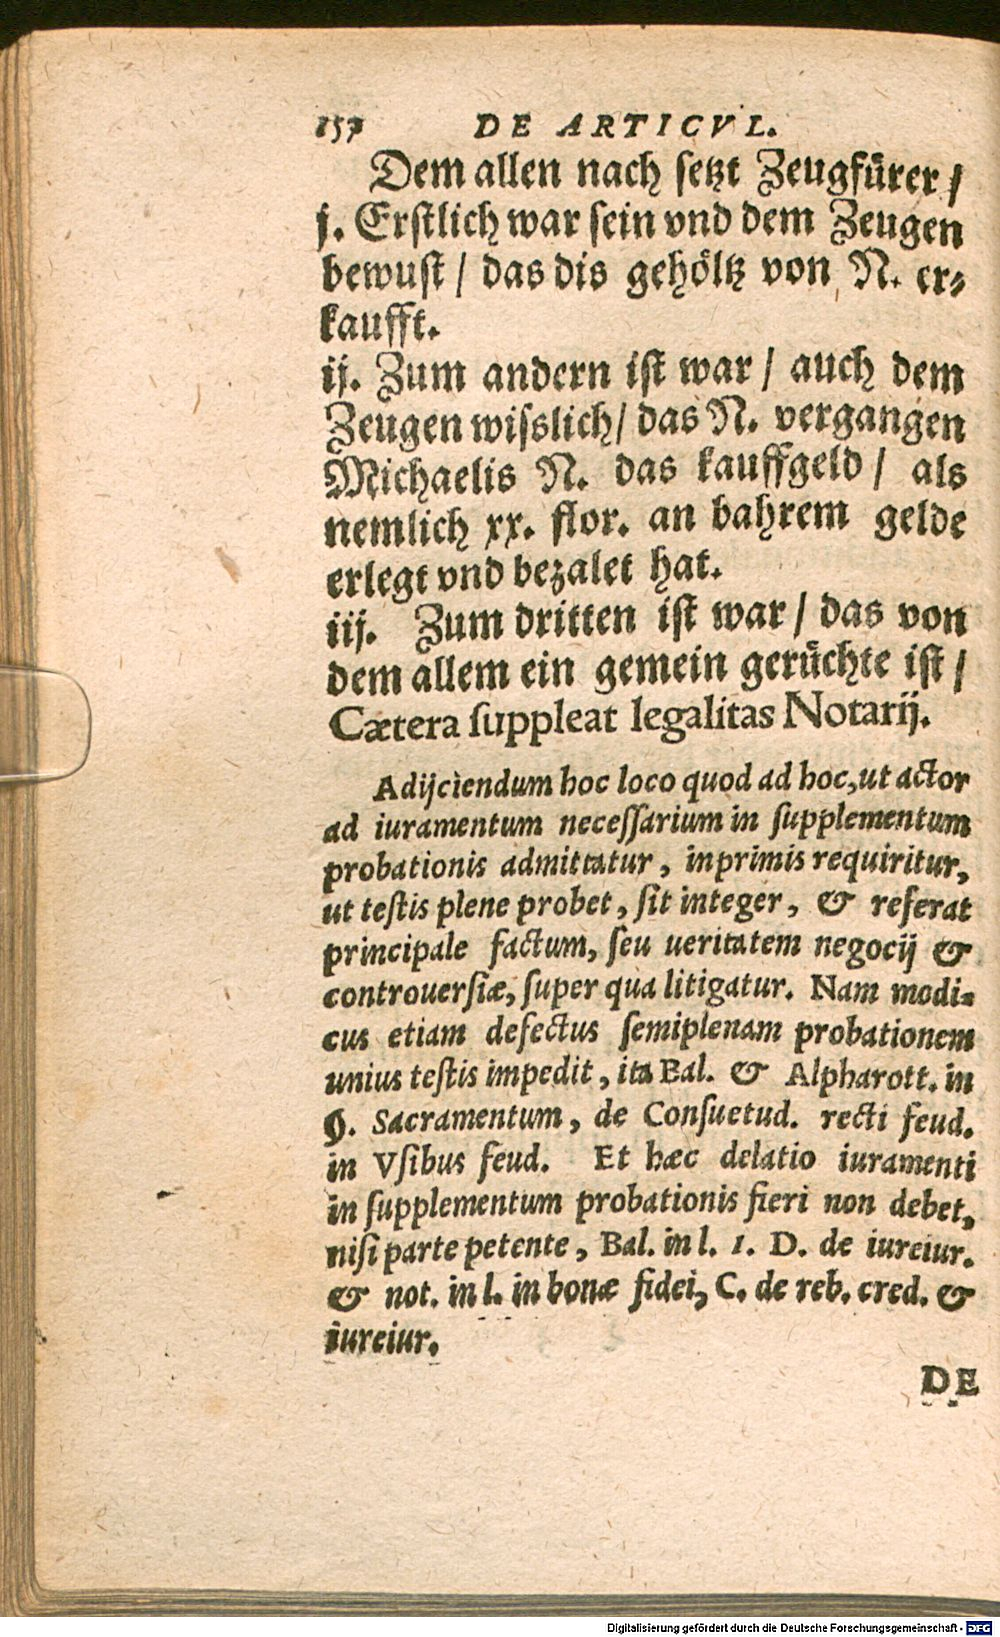 152 DE ARTICVL.
Dem allen nach ſetzt Zeugfürer /
j. Erſtlich war ſein vnd dem Zeugen
bewuſt / das dis gehöltz von N. er⸗
kaufft.
ij. Zum andern iſt war / auch dem
Zeugen wiſslich / das N. vergangen
Michaelis N. das kauffgeld / als
nemlich xx. flor. an bahrem gelde
erlegt vnd bezalet hat.
iij. Zum dritten iſt war / das von
dem allem ein gemein gerüchte iſt /
Cætera ſuppleat legalitas Notarij.
Adijciendum hoc loco quod ad hoc, ut actor
ad iuramentum neceſſarium in ſupplementum
probationis admittatur, inprimis requiritur,
ut teſtis plene probet, ſit integer, & referat
principale factum, ſeu ueritatem negocij &
controuerſiæ, ſuper qua litigatur. Nam modi-
cus etiam defectus ſemiplenam probationem
unius teſtis impedit, ita Bal. & Alpharott. in
§. Sacramentum, de Conſuetud. recti feud.
in Vſibus feud. Et hæc delatio iuramenti
in ſupplementum probationis fieri non debet,
niſi parte petente, Bal. in l. 1. D. de iureiur.
& not. in l. in bonæ fidei, C. de reb. cred. &
iureiur.
DE
Digitalisierung gefördert durch die Deutsche Forschungsgemeinschaft - DFG